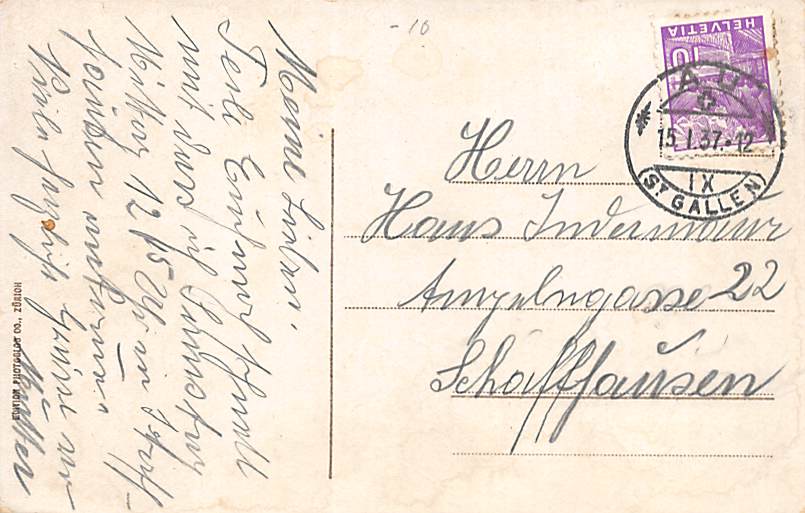 -10
Meine Lieben!
Teile Euch mit schnell
mit dass ich Samstag
Mittag 12 15 Uhr in Schaff-
hausen ankomme.
Viele herzliche Grüsse
Mutter
EDITION PHOTOGLOB CO., ZÜRICH
HELVETIA
10
AU
15.I.37-12
IX
(ST GALLEN)
Herrn
Hans Indermaur
Ampelngasse 22
Schaffhausen